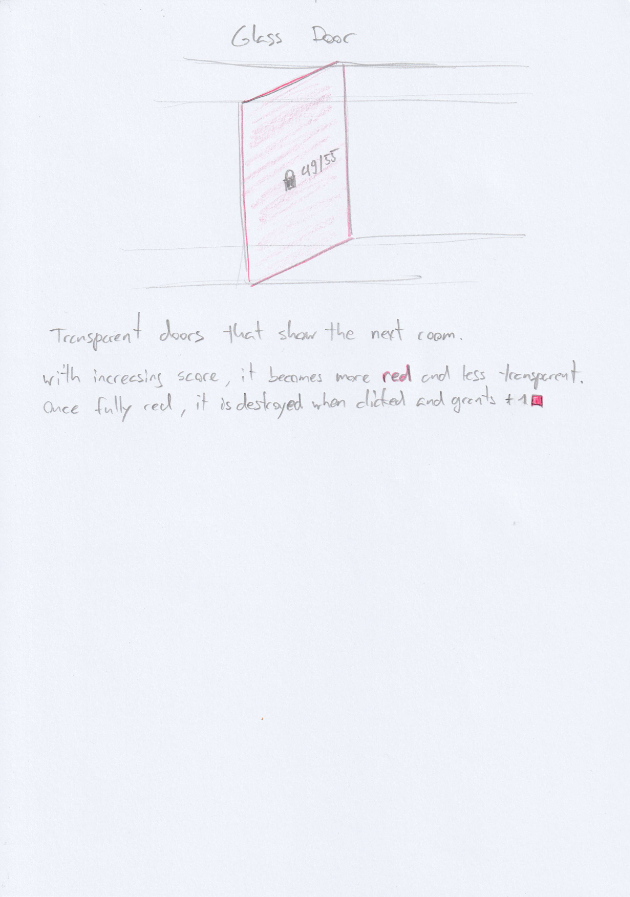 Glass Door
49/55
Transparent doors that show the next room.
with increasing score, it becomes more red and less transparent.
Once fully red, it is destroyed when clicked and grants +1